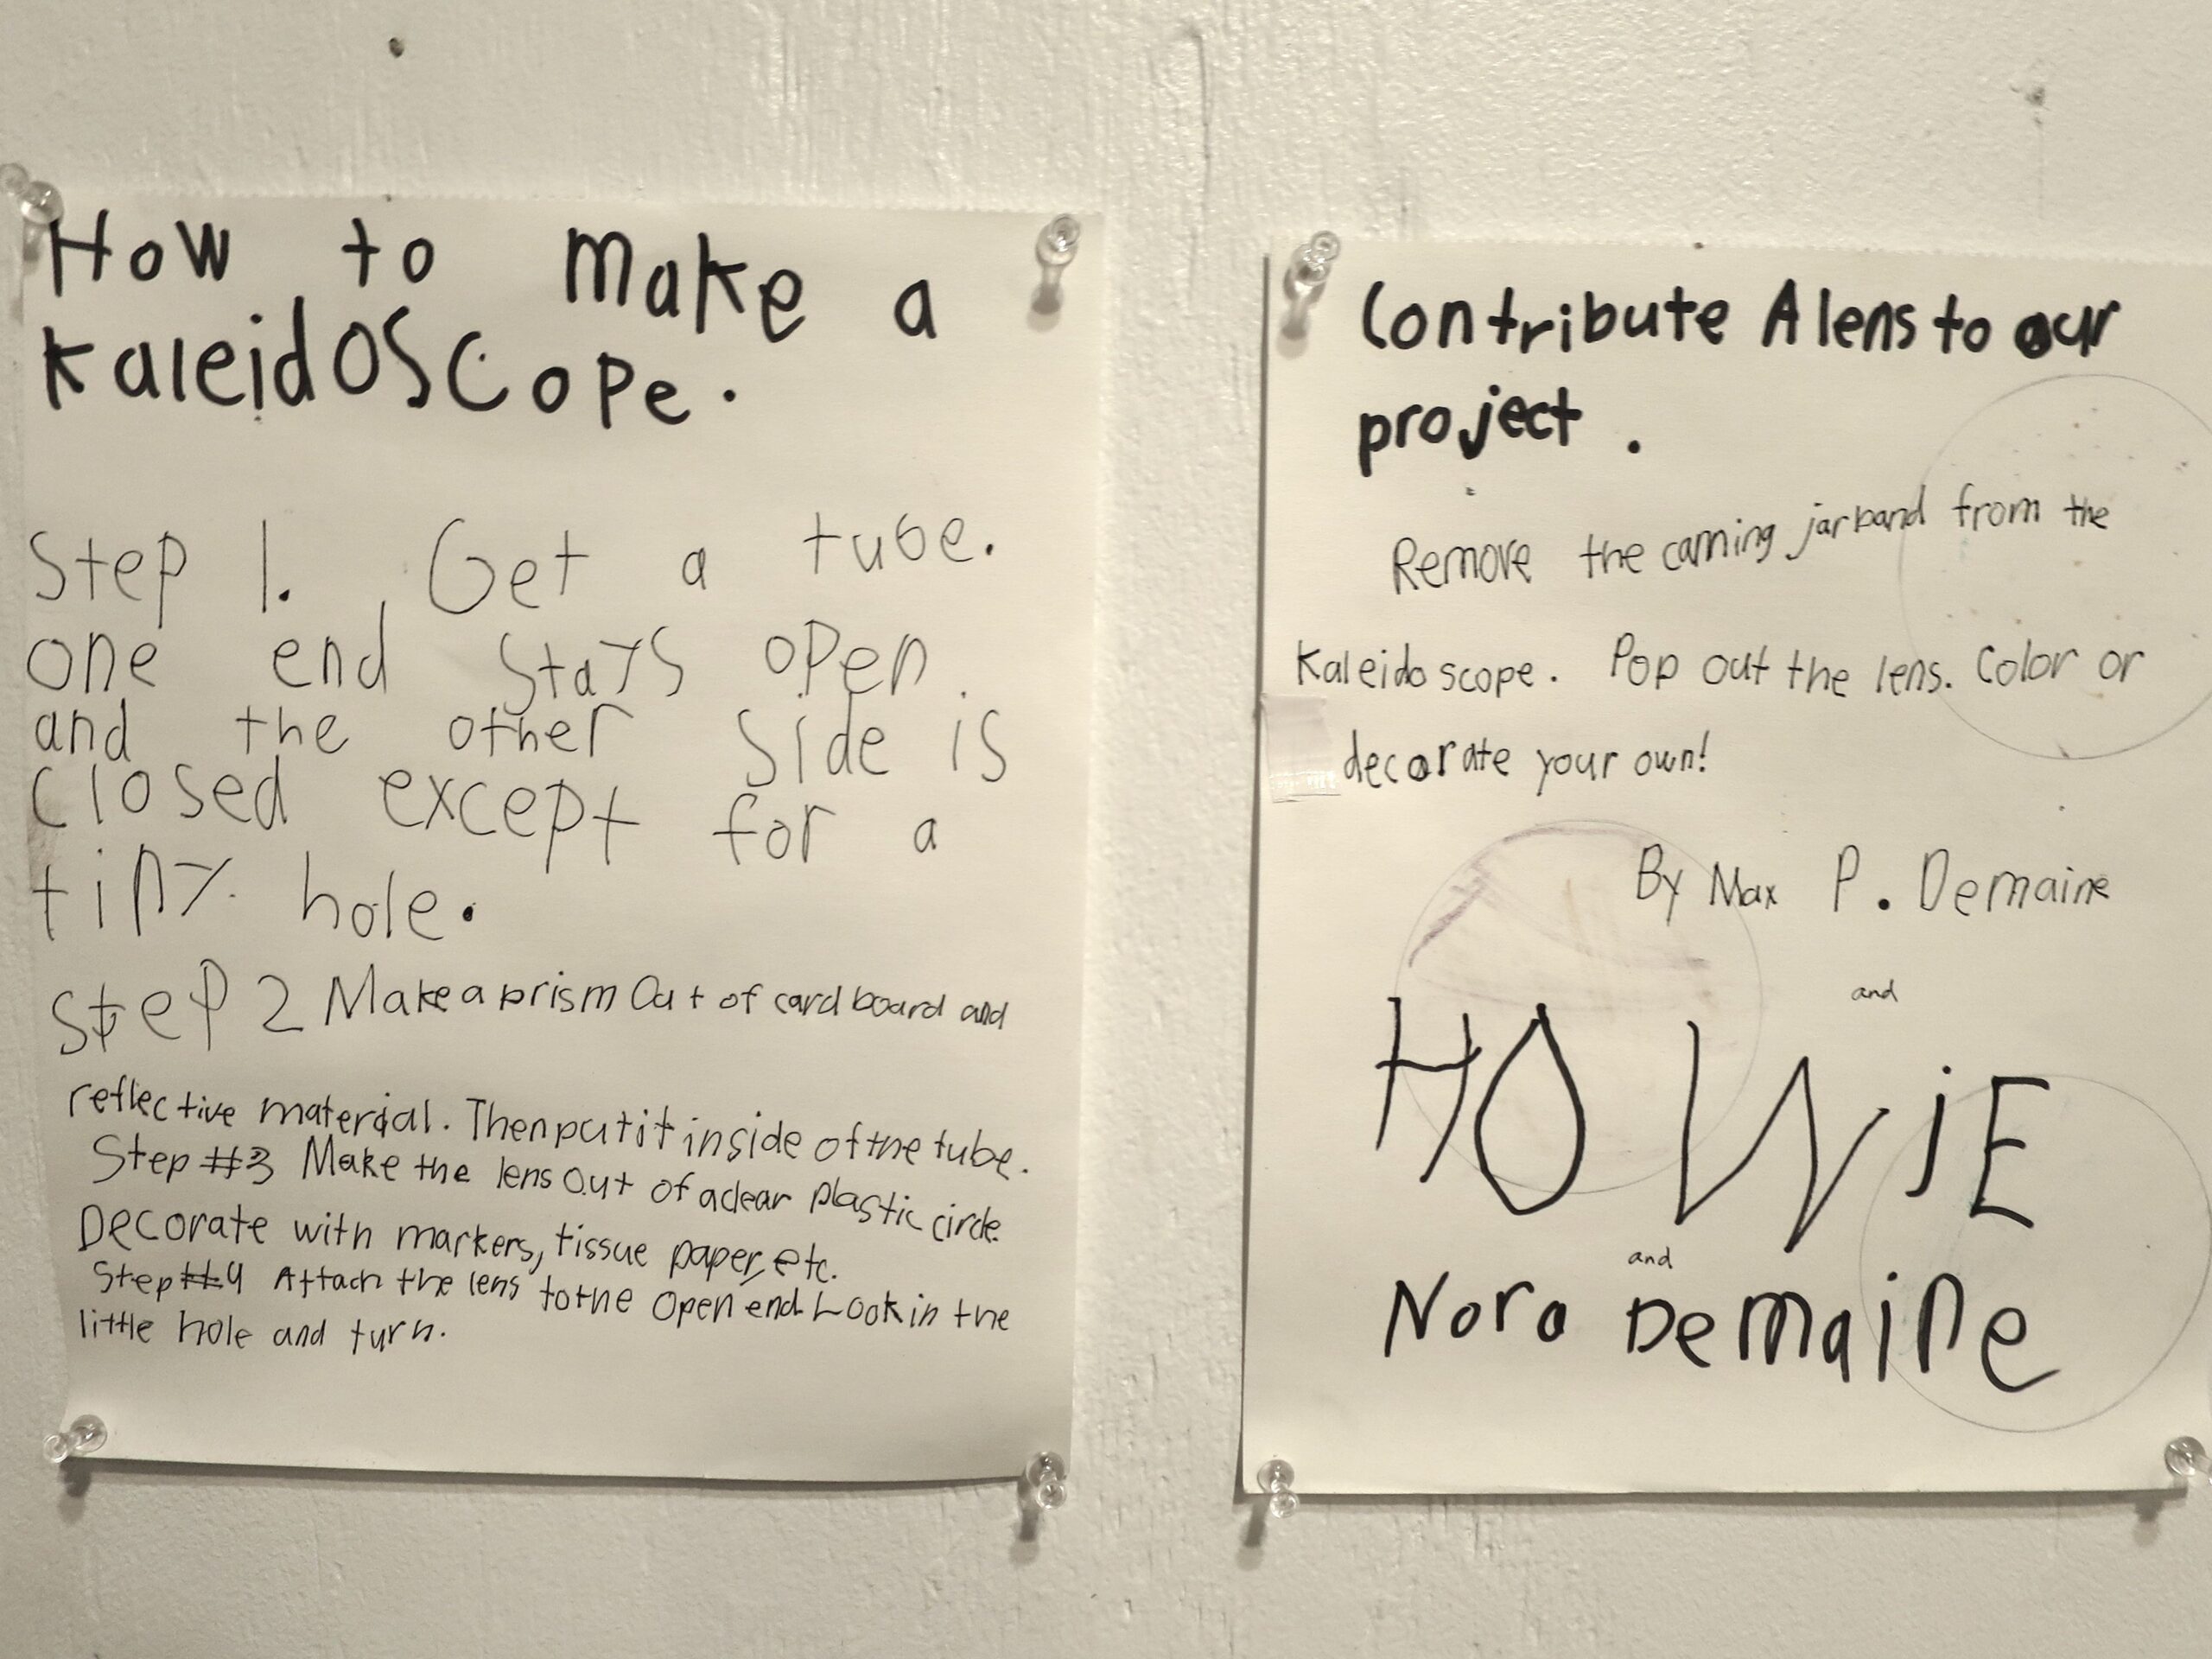 How to make a
kaleidoscope.
Step 1. Get a tube.
one end stays open.
and the other side is
closed except for a
tiny hole.
Step 2 Make a prism Out of cardboard and
reflective material. Then put it inside of the tube.
Step #3 Make the lens Out of a clear plastic circle.
Decorate with markers, tissue paper, etc.
Step #4 Attach the lens to the open end. Look in the
little hole and turn.
Contribute A lens to our
project.
Remove the canning jar band from the
Kaleidoscope. Pop out the lens. Color or
decorate your own!
By Max P. Demaine
and
HOWiE
and
Nora Demaine